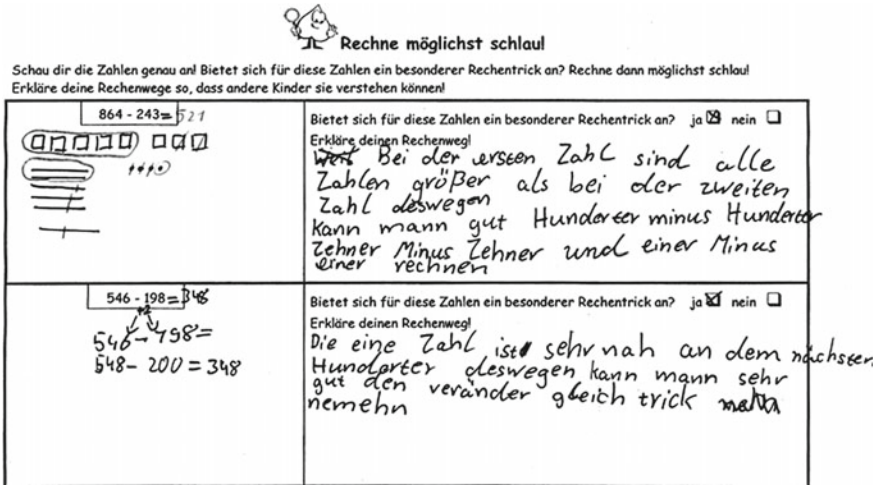 Rechne möglichst schlau!
Schau dir die Zahlen genau an! Bietet sich für diese Zahlen ein besonderer Rechentrick an? Rechne dann möglichst schlau!
Erkläre deine Rechenwege so, dass andere Kinder sie verstehen können!
864 - 243= 521
Bietet sich für diese Zahlen ein besonderer Rechentrick an? ja ☒ nein ☐
Erkläre deinen Rechenweg!
Bei der ersten Zahl sind alle
Zahlen größer als bei der zweiten
Zahl deswegen
kann mann gut Hunderter minus Hunderter
Zehner Minus Zehner und einer Minus
einer rechnen
546 - 198= 348
+2
546 - 198=
548 - 200 = 348
Bietet sich für diese Zahlen ein besonderer Rechentrick an? ja ☒ nein ☐
Erkläre deinen Rechenweg!
Die eine Zahl ist sehr nah an dem nächsten
Hunderter deswegen kann mann sehr
gut den veränder gleich trick
nemehn